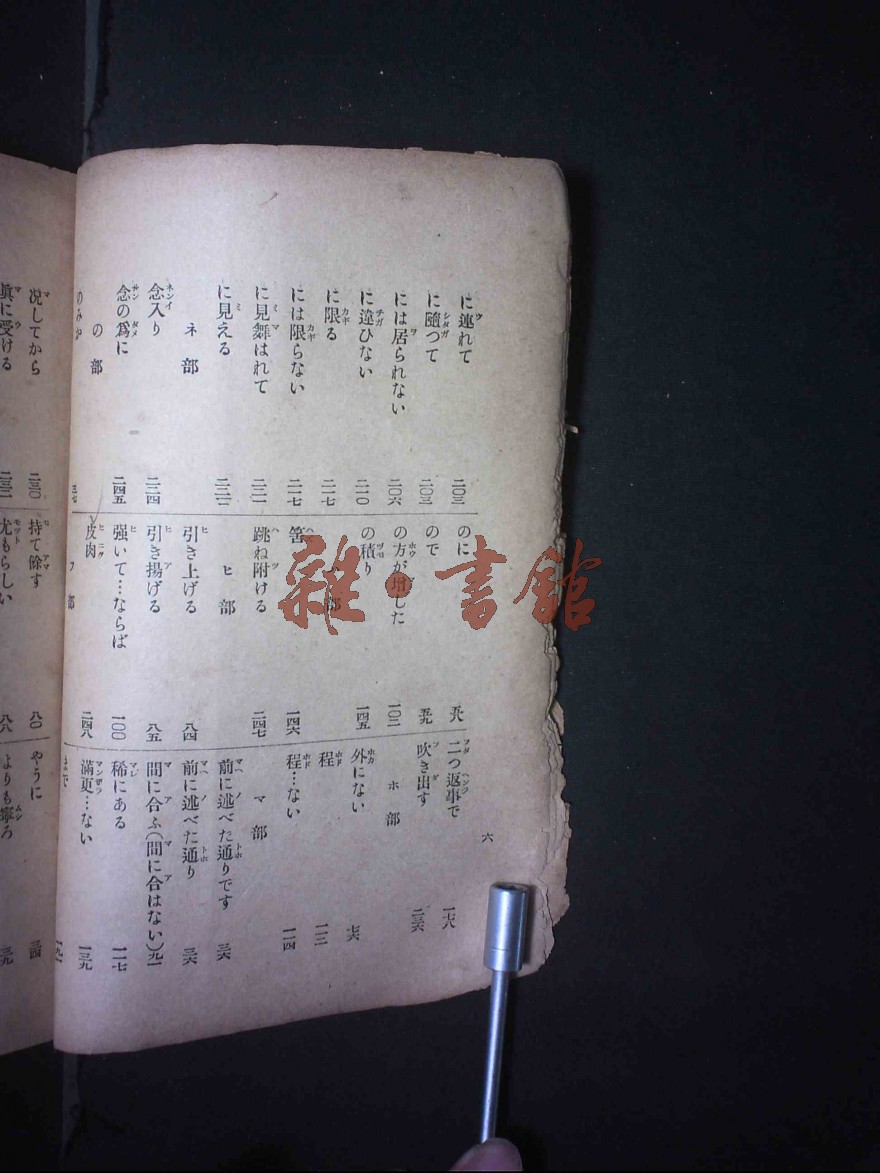 六
に連れて 二〇三
に隨つて 二〇三
には居られない 二〇六
に違ひない 二一〇
に限る 二一七
には限らない 二一七
に見舞はれて 二二一
に見える 二二二
ネ部
念入り 二二四
念の爲に 二四五
の部
のみか
のに 五八
ので 五九
の方が増した 一〇二
の積り 一四五
部
筈 一四六
跳ね附ける 二四七
ヒ部
引き上げる 八四
引き揚げる 八五
强いて…ならば 一〇〇
皮肉 二四八
フ部
二つ返事で 一七八
吹き出す 二三六
ホ部
外にない 七六
程 一一二
程…ない 一一四
マ部
前に述べた通りです 三六
前に述べた通り 三六
間に合ふ(間に合はない) 九一
稀にある 一一七
滿更…ない 一三九
まで 一九一
况してから 二三〇
眞に受ける 二三二
持て餘す 八〇
尤もらしい 八八
やうに
よりも寧ろ
雜·書館